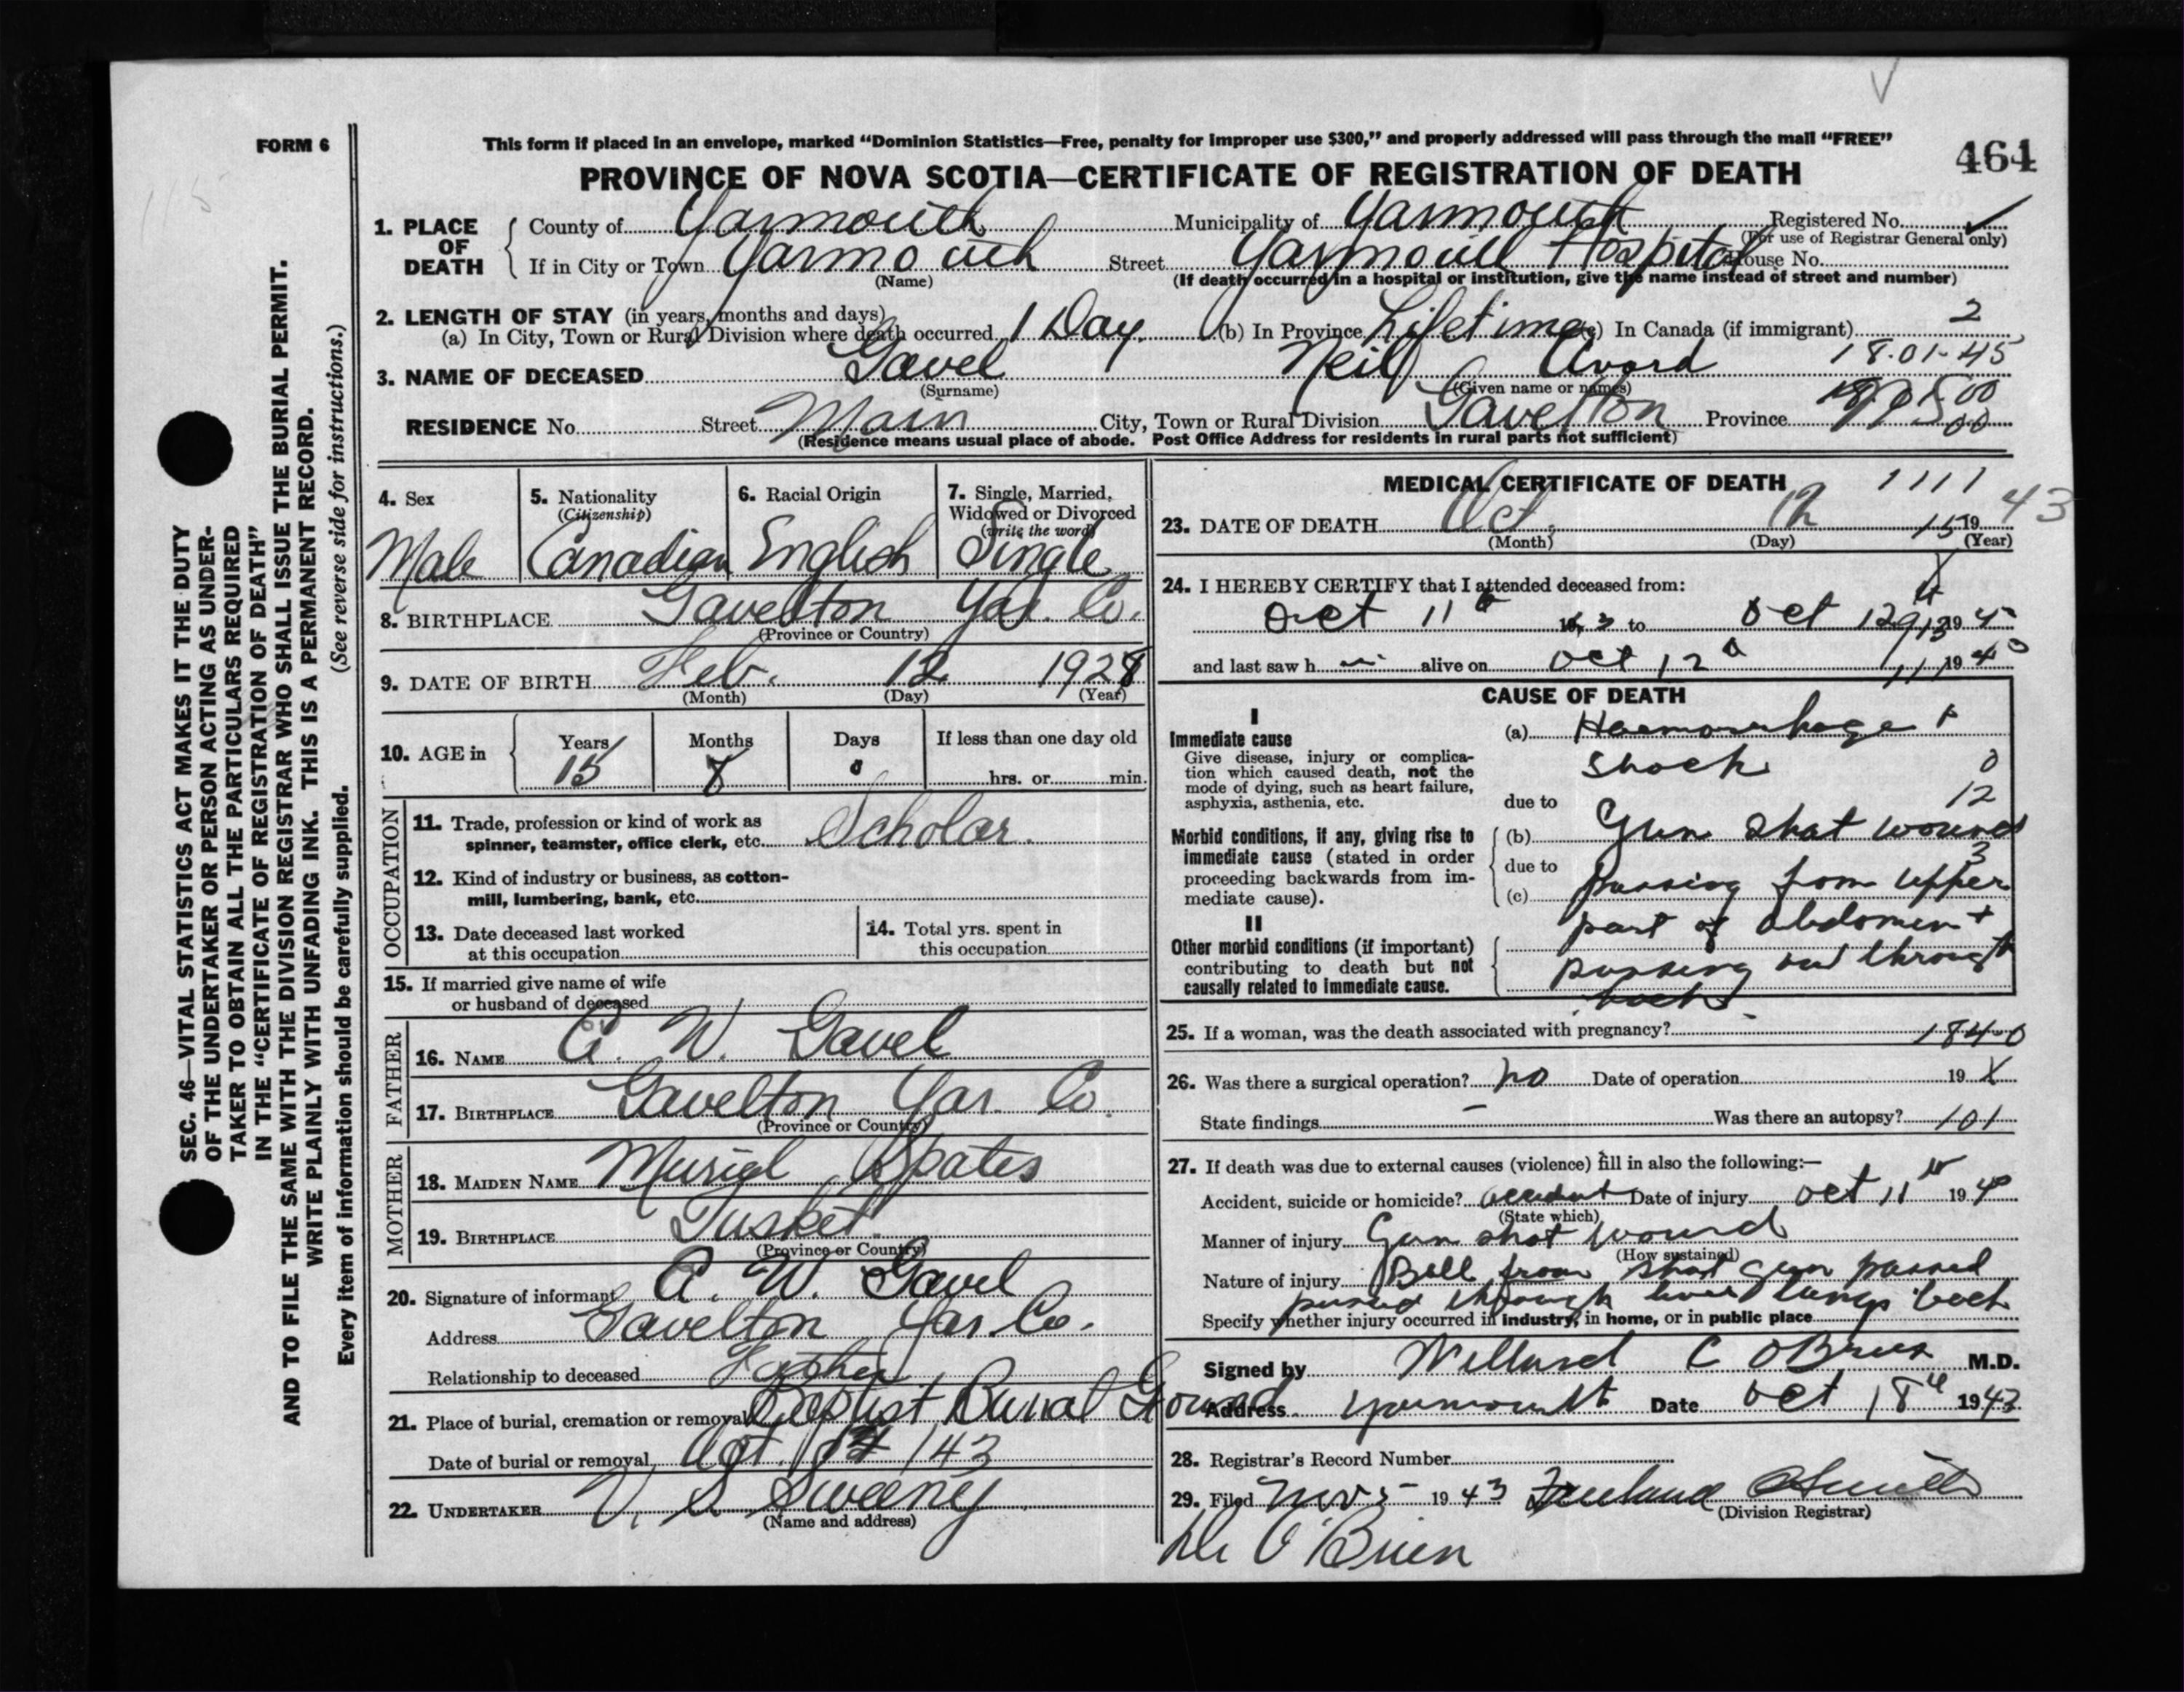 FORM 6
This form if placed in an envelope, marked “Dominion Statistics—Free, penalty for improper use $300,” and properly addressed will pass through the mail “FREE”
464
PROVINCE OF NOVA SCOTIA—CERTIFICATE OF REGISTRATION OF DEATH
1. PLACE OF DEATH
County of Yarmouth Municipality of Yarmouth Registered No.
(For use of Registrar General only)
If in City or Town Yarmouth Street Yarmouth Hospital House No.
(Name) (If death occurred in a hospital or institution, give the name instead of street and number)
2. LENGTH OF STAY (in years, months and days)
(a) In City, Town or Rural Division where death occurred 1 Day. (b) In Province Lifetime (c) In Canada (if immigrant) 2
3. NAME OF DECEASED Gavel Neil Avard 18-01-45
(Surname) (Given name or names)
RESIDENCE No. Street Main City, Town or Rural Division Gavelton Province
(Residence means usual place of abode. Post Office Address for residents in rural parts not sufficient)
4. Sex Male
5. Nationality (Citizenship) Canadian
6. Racial Origin English
7. Single, Married, Widowed or Divorced (write the word) Single
8. BIRTHPLACE Gavelton Yar. Co.
(Province or Country)
9. DATE OF BIRTH Feb. 12 1928
(Month) (Day) (Year)
10. AGE in Years 15 Months 8 Days 0 If less than one day old hrs. or min.
OCCUPATION
11. Trade, profession or kind of work as
spinner, teamster, office clerk, etc. Scholar.
12. Kind of industry or business, as cotton-
mill, lumbering, bank, etc.
13. Date deceased last worked
at this occupation
14. Total yrs. spent in
this occupation
15. If married give name of wife
or husband of deceased
FATHER
16. NAME A. W. Gavel
17. BIRTHPLACE Gavelton Yar. Co.
(Province or Country)
MOTHER
18. MAIDEN NAME Muriel Spates
19. BIRTHPLACE Tusket
(Province or Country)
20. Signature of informant A. W. Gavel
Address Gavelton Yar. Co.
Relationship to deceased Father
21. Place of burial, cremation or removal Baptist Burial Ground
Date of burial or removal Oct. /43
22. UNDERTAKER V. S Sweeny
(Name and address)
MEDICAL CERTIFICATE OF DEATH 1111
23. DATE OF DEATH Oct. 12 1943
(Month) (Day) (Year)
24. I HEREBY CERTIFY that I attended deceased from:
Oct 11 to Oct 12 19
and last saw h alive on Oct 12 19 43
CAUSE OF DEATH
I
Immediate cause
Give disease, injury or complica-
tion which caused death, not the
mode of dying, such as heart failure,
asphyxia, asthenia, etc.
(a) Haemorrhage +
shock
due to
Morbid conditions, if any, giving rise to
immediate cause (stated in order
proceeding backwards from im-
mediate cause).
(b) Gun shot wound
due to
(c) passing from upper
II
Other morbid conditions (if important)
contributing to death but not
causally related to immediate cause.
part of abdomen +
passing out through
back
25. If a woman, was the death associated with pregnancy? 1840
26. Was there a surgical operation? no Date of operation 19 X
State findings — Was there an autopsy? 101
27. If death was due to external causes (violence) fill in also the following:—
Accident, suicide or homicide? accident Date of injury Oct 11 19
(State which)
Manner of injury Gun shot wound
(How sustained)
Nature of injury Ball from shot gun passed
passed through liver lungs back
Specify whether injury occurred in industry, in home, or in public place
Signed by Willard C O'Brien M.D.
Address Yarmouth Date Oct 18 1943
28. Registrar's Record Number
29. Filed Nov 5 1943
(Division Registrar)
Dr O'Brien
SEC. 46—VITAL STATISTICS ACT MAKES IT THE DUTY
OF THE UNDERTAKER OR PERSON ACTING AS UNDER-
TAKER TO OBTAIN ALL THE PARTICULARS REQUIRED
IN THE “CERTIFICATE OF REGISTRATION OF DEATH”
AND TO FILE THE SAME WITH THE DIVISION REGISTRAR WHO SHALL ISSUE THE BURIAL PERMIT.
WRITE PLAINLY WITH UNFADING INK. THIS IS A PERMANENT RECORD.
Every item of information should be carefully supplied. (See reverse side for instructions.)